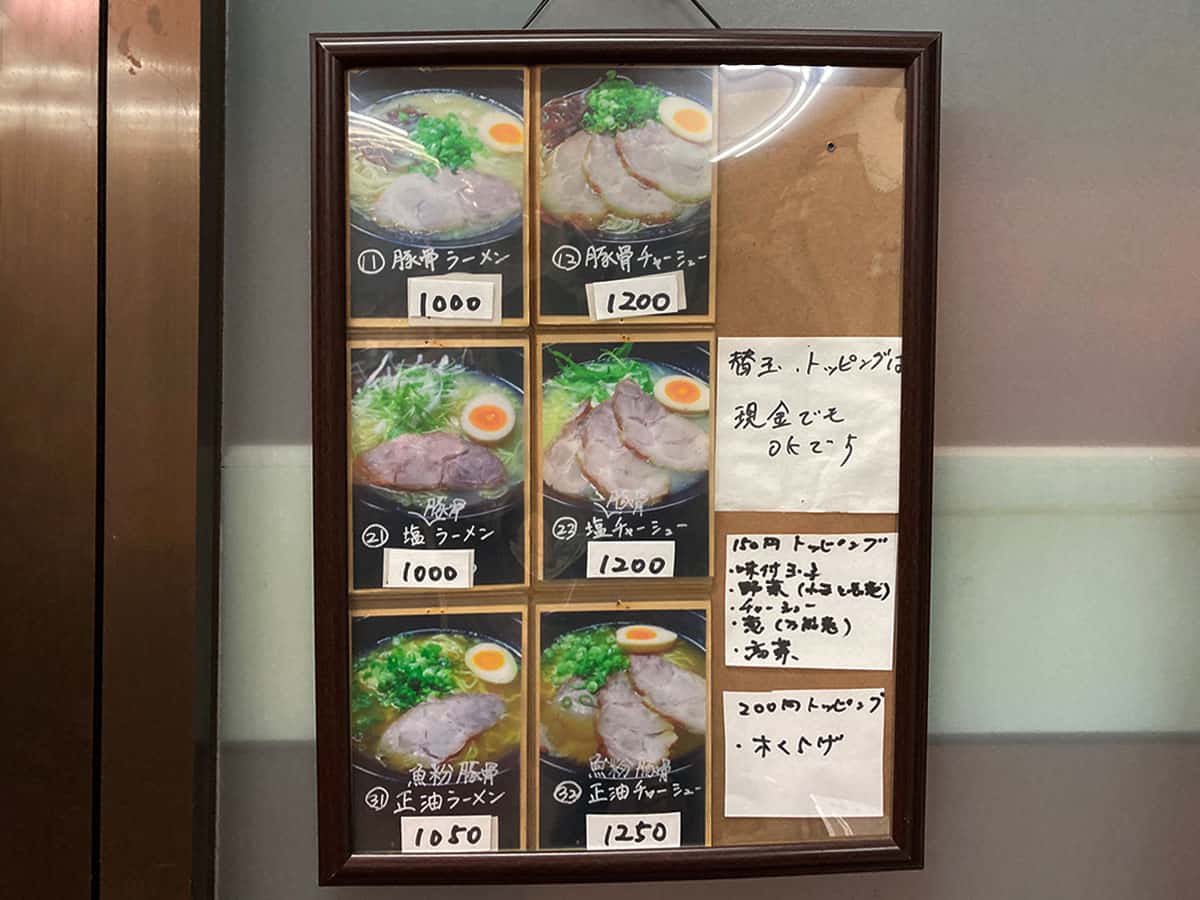 ⑪ 豚骨ラーメン
1000
⑫ 豚骨チャーシュー
1200
豚骨
㉑ 塩ラーメン
1000
豚骨
塩チャーシュー
1200
魚粉豚骨
㉛ 正油ラーメン
1050
魚粉豚骨
㉜ 正油チャーシュー
1250
替玉、トッピングは
現金でも
OKです
150円トッピング
・味付玉子
・野菜
・チャーシュー
・葱(万能葱)
・高菜
200円トッピング
・木くらげ